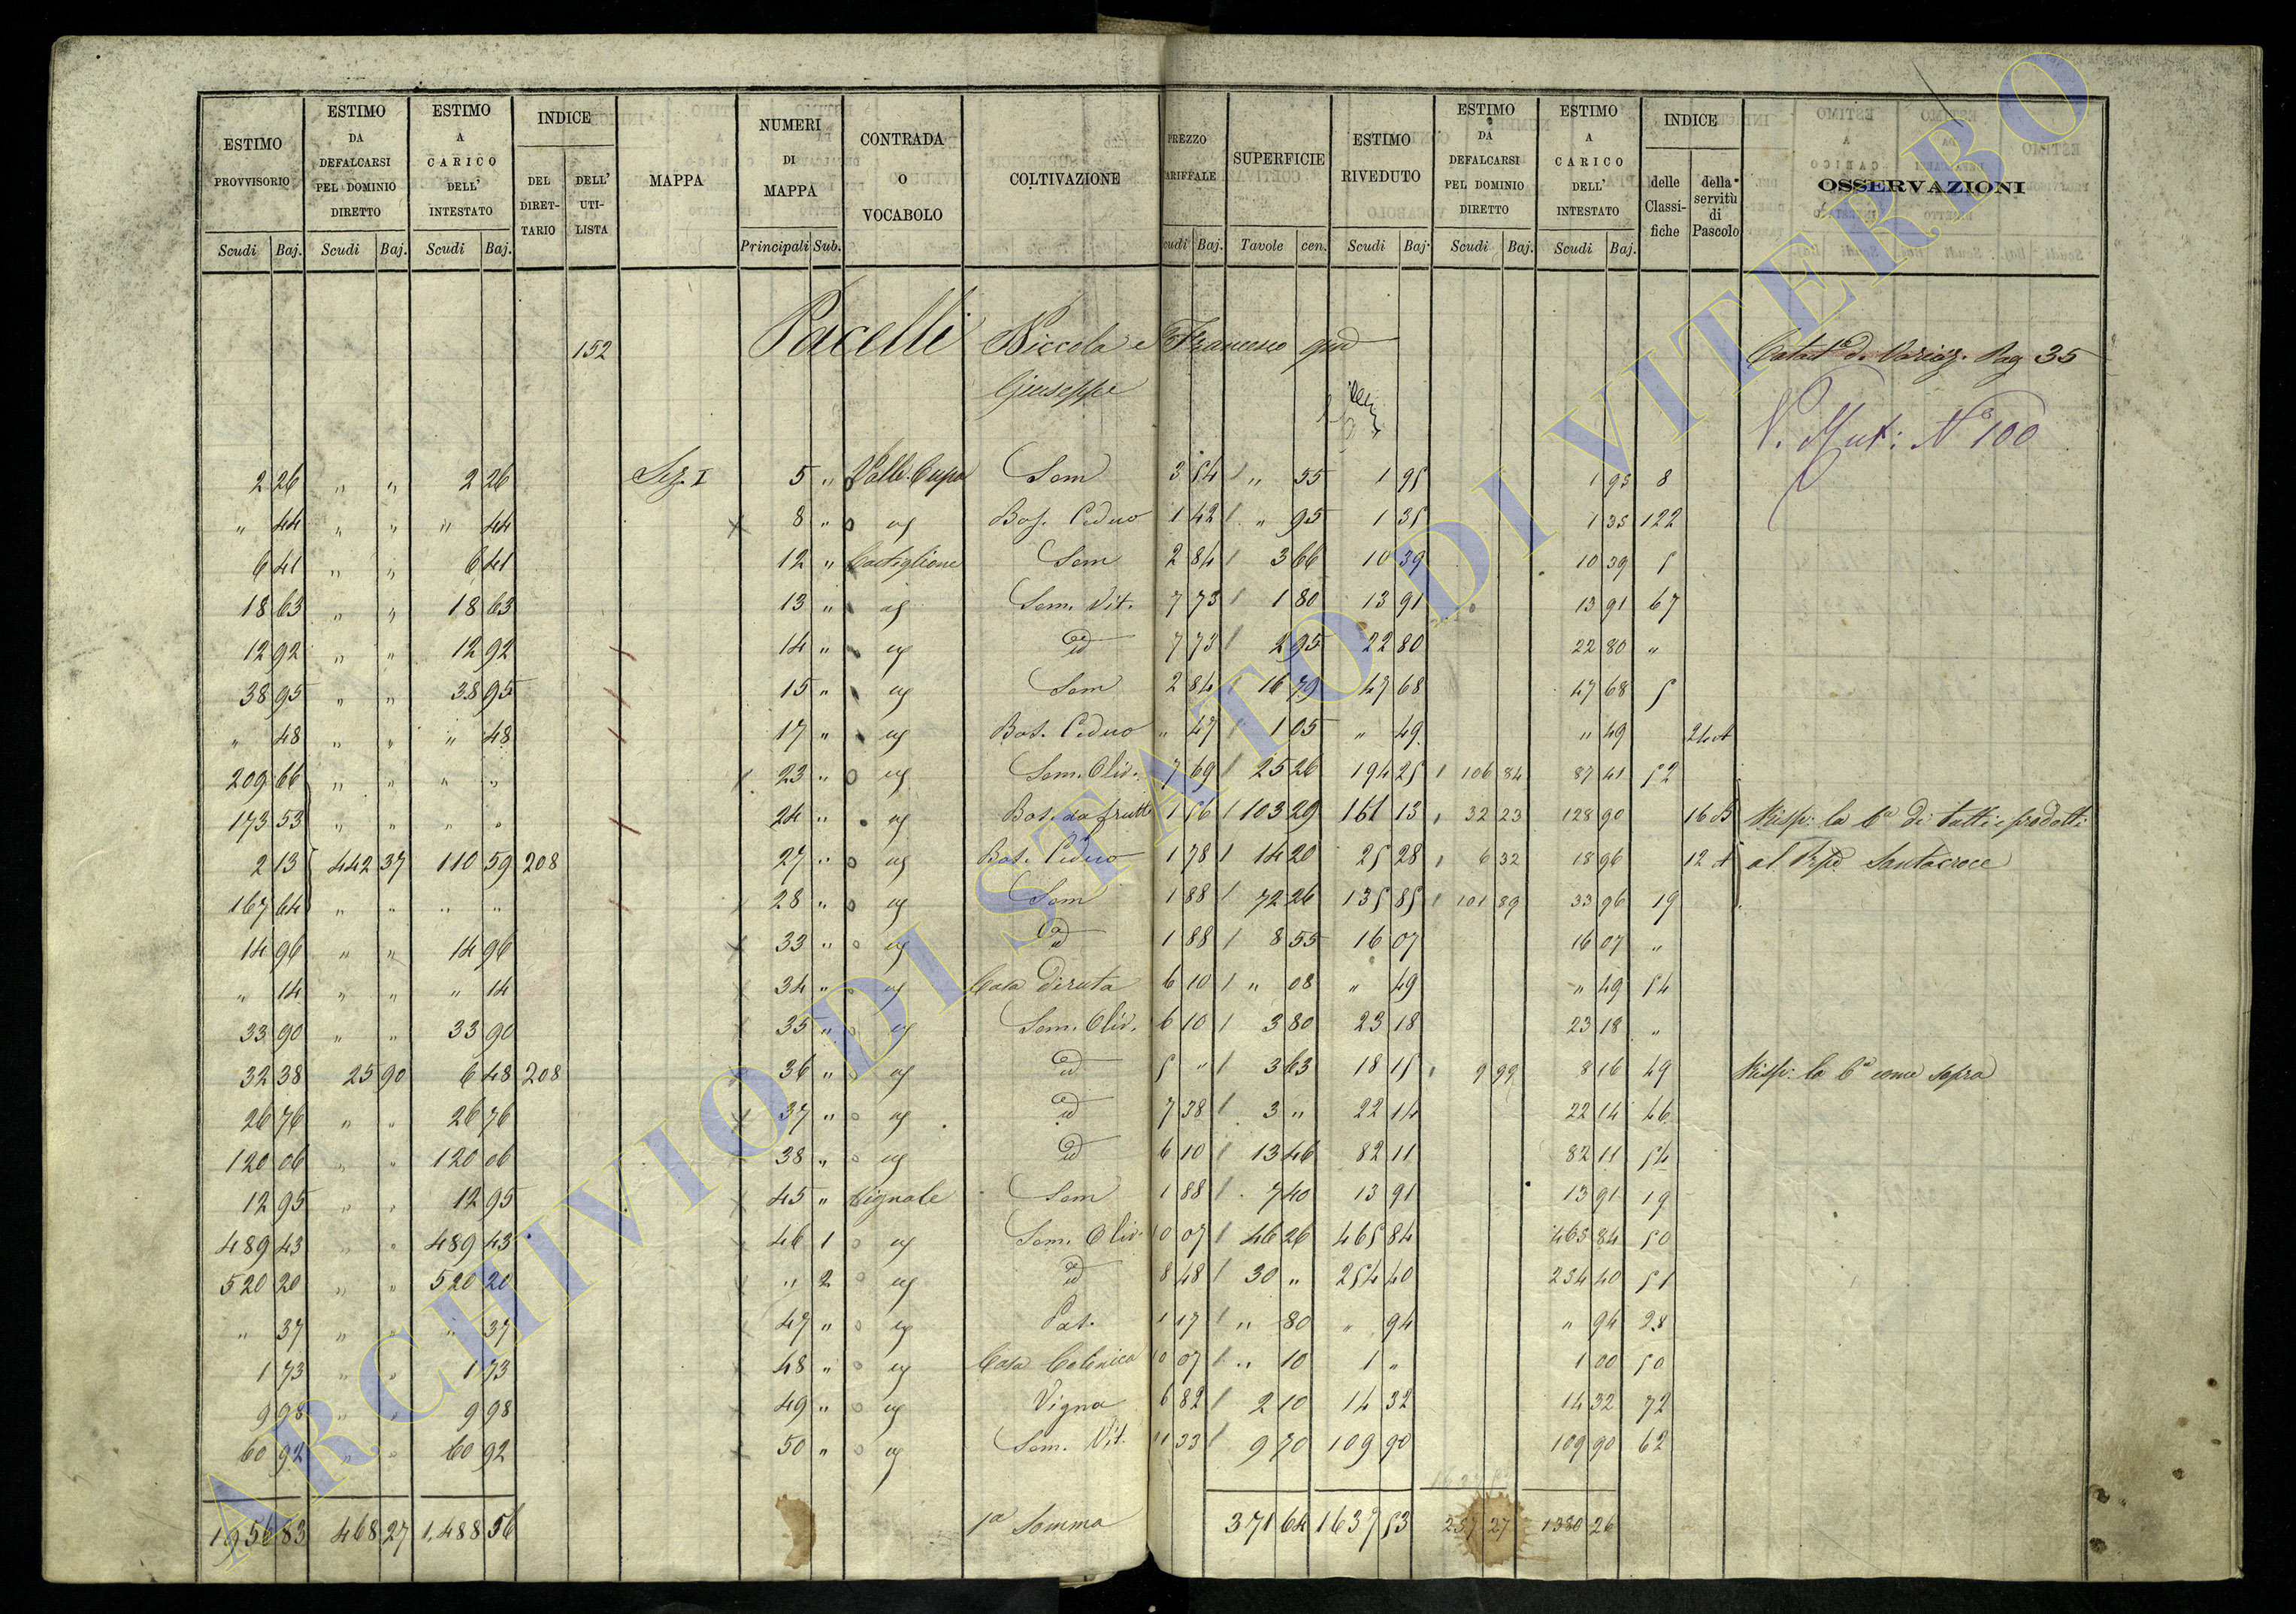 ESTIMO PROVVISORIO | ESTIMO DA DEFALCARSI PEL DOMINIO DIRETTO | ESTIMO A CARICO DELL' INTESTATO | INDICE | MAPPA | NUMERI DI MAPPA | CONTRADA O VOCABOLO | COLTIVAZIONE | PREZZO TARIFFALE | SUPERFICIE | ESTIMO RIVEDUTO | ESTIMO DA DEFALCARSI PEL DOMINIO DIRETTO | ESTIMO A CARICO DELL' INTESTATO | INDICE | OSSERVAZIONI
DEL DIRET-TARIO | DELL' UTI-LISTA | delle Classi-fiche | della servitù di Pascolo
Scudi | Baj. | Scudi | Baj. | Scudi | Baj. | Principali | Sub. | cudi | Baj. | Tavole | cen. | Scudi | Baj. | Scudi | Baj. | Scudi | Baj.
152 Pacelli Niccola e Francesco qm Catast. d. Variaz. Pag 35
Giuseppe
V. Mut: N° 100
2 26 " " 2 26 Sez. I 5 " Valle Cupa Sem 3 54 " 55 1 95 1 95 8
" 44 " " " 44 8 " id Bos. Ceduo 1 42 " 95 1 35 1 35 122
6 41 " " 6 41 12 " Castiglione Sem 2 84 3 66 10 39 10 39 5
18 63 " " 18 63 13 " id Sem. Vit. 7 73 1 80 13 91 13 91 67
12 92 " " 12 92 14 " id id 7 73 2 95 22 80 22 80 "
38 95 " " 38 95 15 " id Sem 2 84 16 79 47 68 47 68 5
" 48 " " " 48 17 " id Bos. Ceduo " 47 1 05 " 49 " 49 24 A
209 66 " " " " 23 " id Sem. Oliv. 7 69 25 26 194 25 106 84 87 41 52
173 53 " " " " 24 " id Bos. da frutti 1 56 103 29 161 13 32 23 128 90 16 B Risp: la 6a di tutti i prodotti
2 13 442 37 110 59 208 27 " id Bos. Ceduo 1 78 14 20 25 28 6 32 18 96 12 A al Santacroce
167 64 " " " " 28 " id Sem 1 88 72 26 135 85 101 89 33 96 19
14 96 " " 14 96 33 " id id 1 88 8 55 16 07 16 07 "
" 14 " " " 14 34 " id Casa diruta 6 10 " 08 " 49 " 49 54
33 90 " " 33 90 35 " id Sem. Oliv. 6 10 3 80 23 18 23 18 "
32 38 25 90 6 48 208 36 " id id 5 " 3 63 18 15 9 99 8 16 49 Risp: la 6a come sopra
26 76 " " 26 76 37 " id id 7 38 3 " 22 14 22 14 46
120 06 " " 120 06 38 " id id 6 10 13 46 82 11 82 11 54
12 95 " " 12 95 45 " Vignale Sem 1 88 7 40 13 91 13 91 19
489 43 " " 489 43 46 1 id Sem. Oliv. 10 07 46 26 465 84 465 84 50
520 20 " " 520 20 " 2 id id 8 48 30 " 254 40 254 40 51
" 37 " " " 37 47 " id Pas. 1 17 " 80 " 94 " 94 28
1 73 " " 1 73 48 " id Casa Colonica 10 07 " 10 1 " 1 00 50
9 98 " " 9 98 49 " id Vigna 6 82 2 10 14 32 14 32 72
60 92 " " 60 92 50 " id Sem. Vit. 11 33 9 70 109 90 109 90 62
1956 83 468 27 1,488 56 1a Somma 371 64 1637 53 257 27 1380 26
ARCHIVIO DI STATO DI VITERBO